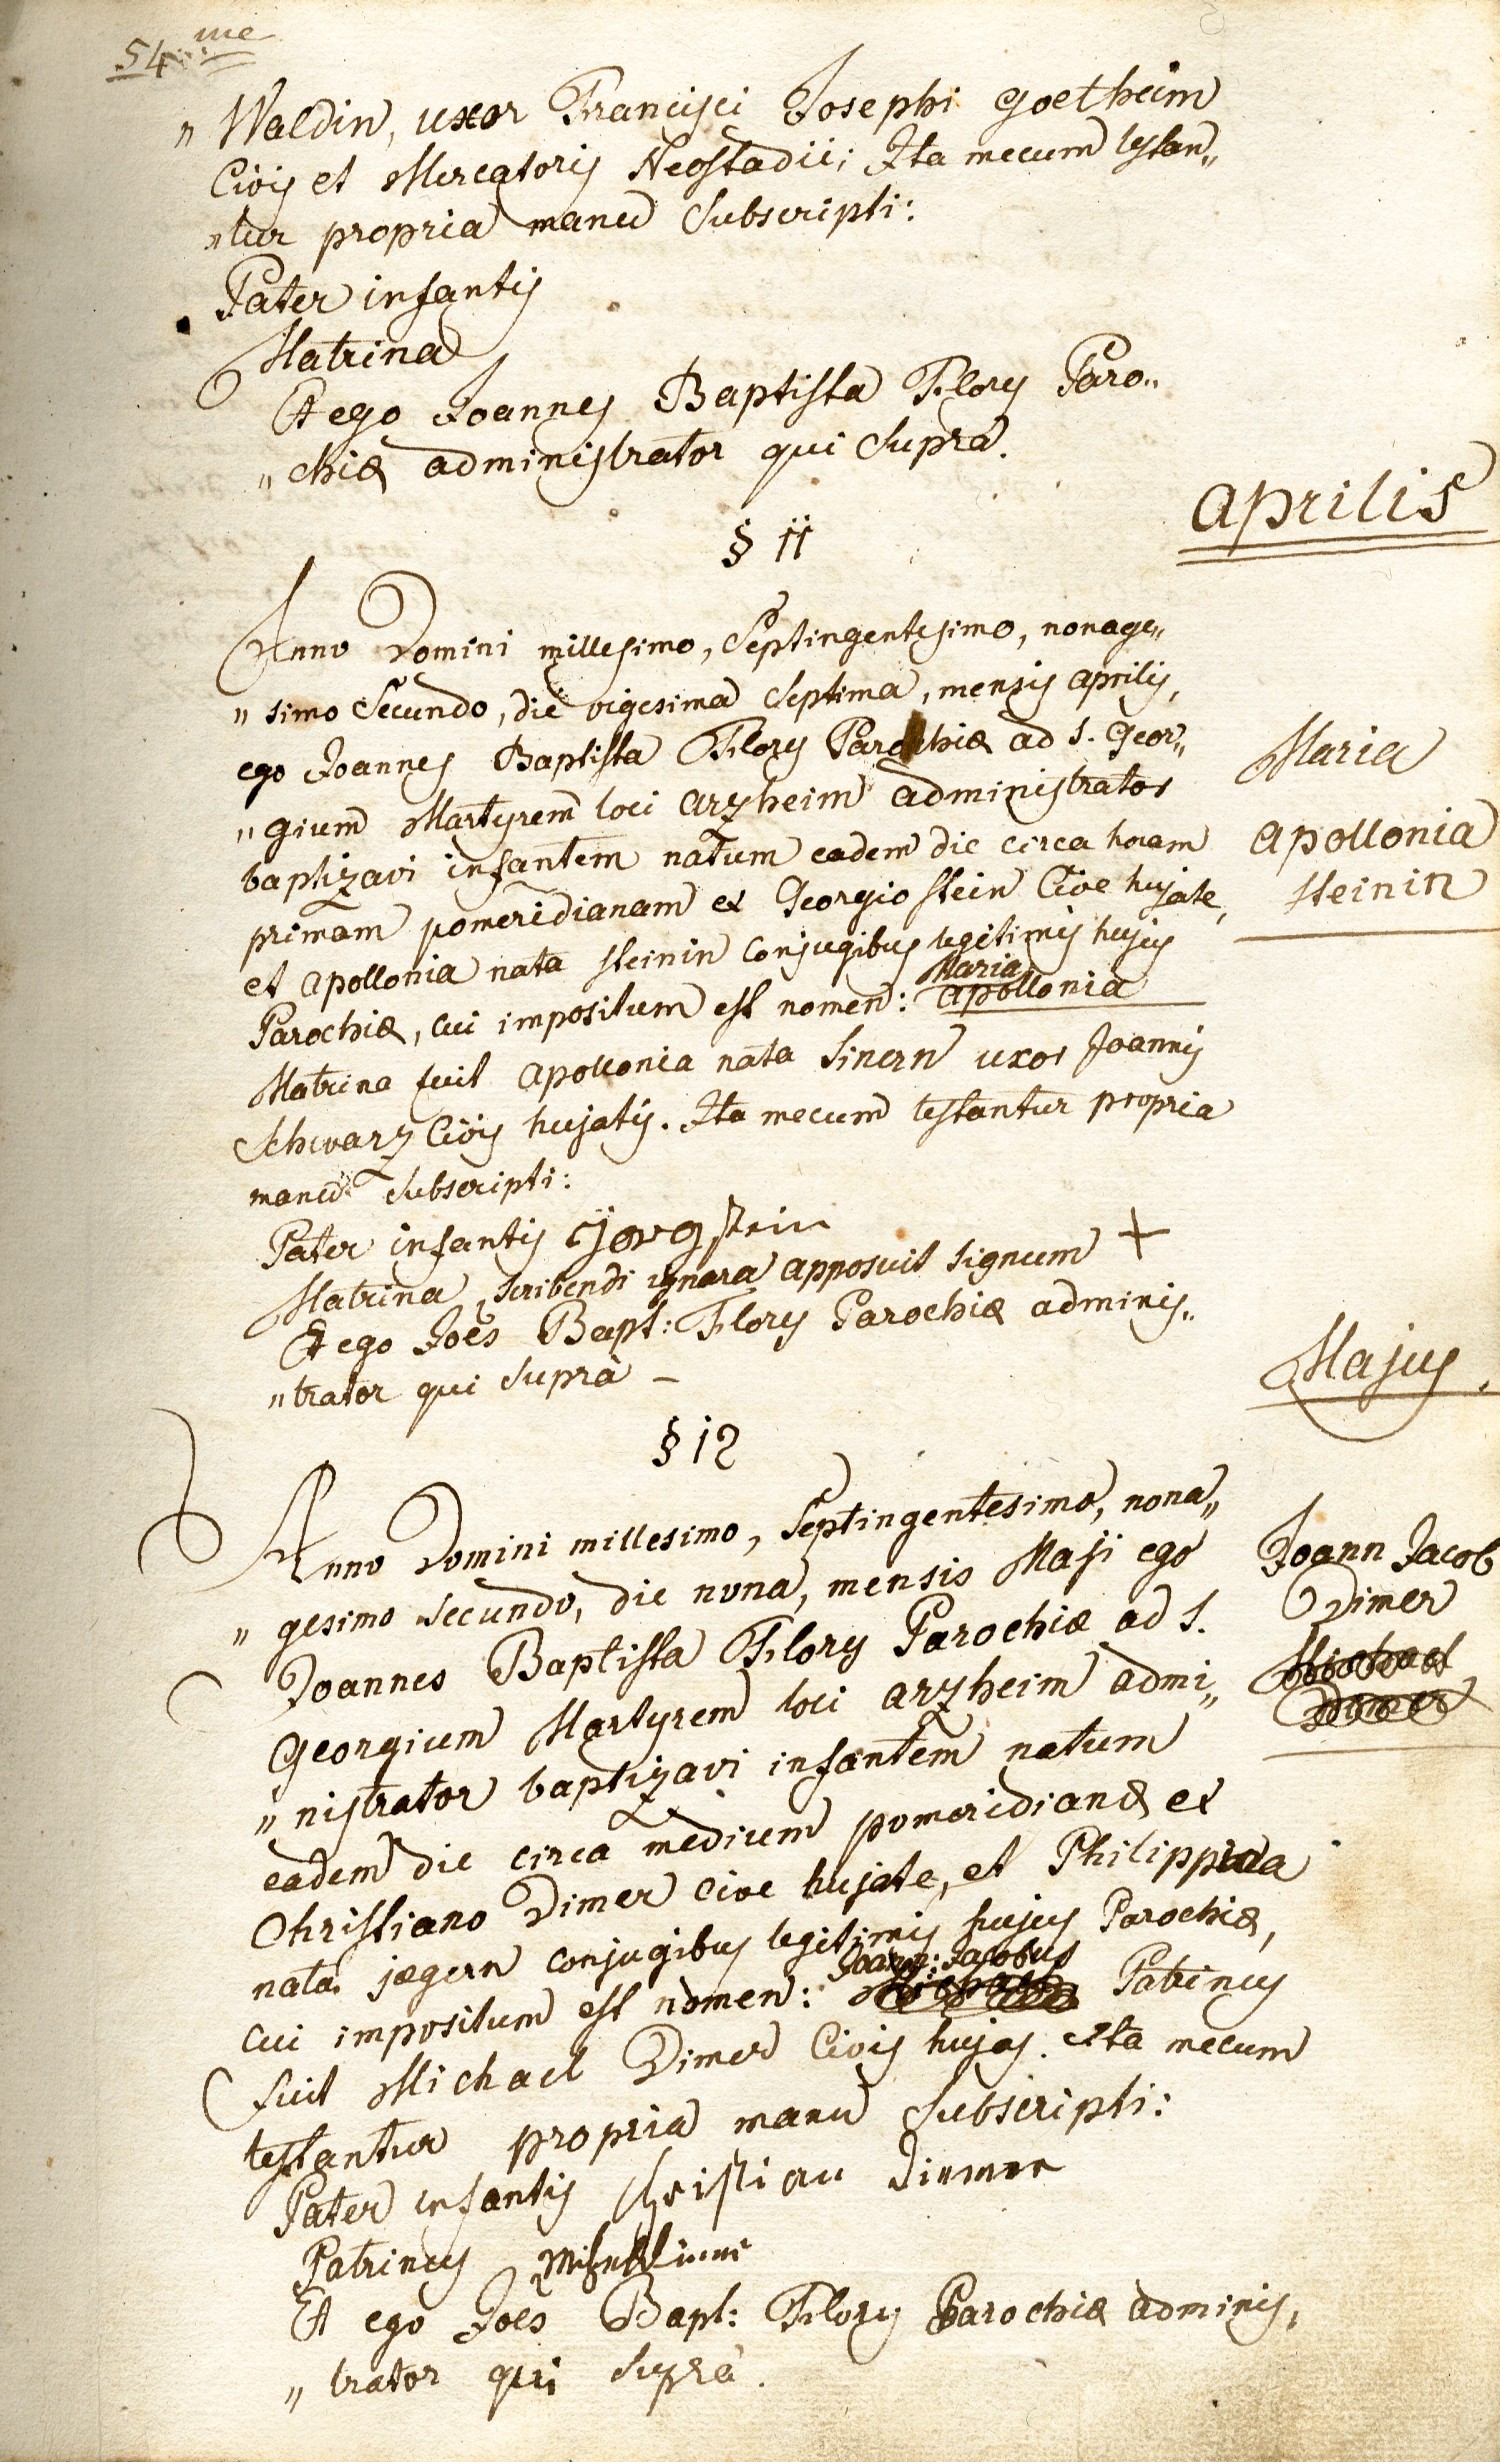 54me
„ Waldin, uxor Francisci Josephi Goetheim
Civis et Mercatoris Neostadii; Ita mecum testan„
„tur propria manu Subscripti:
Pater infantis
Matrina
Et ego Joannes Baptista Flory Paro„
„chiæ administrator qui Supra.
aprilis
§ 11
Anno Domini millesimo, Septingentesimo, nonage„
„simo Secundo, die vigesima Septima, mensis aprilis,
ego Joannes Baptista Flory Parochiæ ad S. Geor„
„gium Martyrem loci arzheim administrator
baptizavi infantem natum eadem die circa horam
primam pomeridianam ex Georgio Stein Cive hujate,
et apollonia nata Steinin Conjugibus legitimis hujus
Parochiæ, cui impositum est nomen: Maria apollonia
Matrina fuit apollonia nata Sinern uxor Joannis
Schwarz Civis hujatis. Ita mecum testantur propria
manu Subscripti:
Maria
apollonia
Steinin
Pater infantis Gjorg Stein
Matrina scribendi ignara apposuit Signum +
Et ego Joes Bapt: Flory Parochiæ adminis„
„trator qui Suprà –
Majus.
§ 12
Anno Domini millesimo, Septingentesimo, nona„
„gesimo Secundo, die nona, mensis Maji ego
Joannes Baptista Flory Parochiæ ad S.
Georgium Martyrem loci arzheim admi„
„nistrator baptizavi infantem natum
eadem die circa medium pomeridianæ ex
Christiano Dimer cive hujate, et Philippina
nata jægern conjugibus legitimis hujus Parochiæ,
cui impositum est nomen: Joann: Jacobus Michael Patrinus
fuit Michael Dimer Civis hujas. Ita mecum
testantur propria manu Subscripti:
Joann Jacob
Dimer
Michael
Dimer
Pater infantis Christian Dimmer
Patrinus
Et ego Joes Bapt: Flory Parochiæ adminis„
„trator qui Supra.